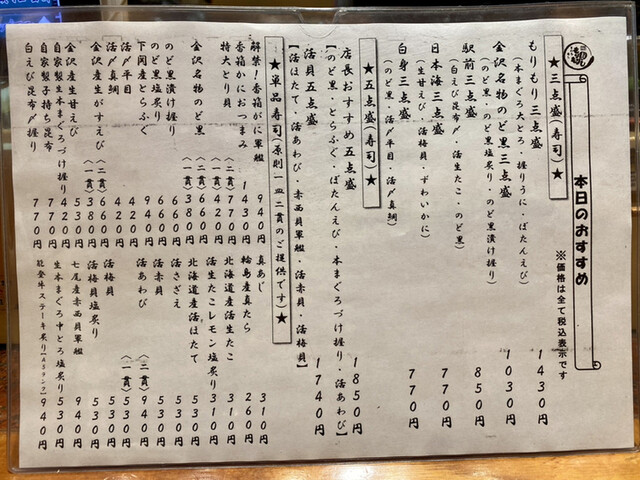 本日のおすすめ
※価格は全て税込表示です
★三点盛(寿司)★
もりもり三点盛 1430円
(本まぐろ大とろ・握りうに・ぼたんえび)
金沢名物のど黒三点盛 1030円
(のど黒・のど黒塩炙り・のど黒漬け握り)
駅前三点盛 850円
(白えび昆布〆・活生たこ・のど黒)
日本海三点盛 770円
(生甘えび・活梅貝・ずわいかに)
白身三点盛 770円
(のど黒・活〆平目・活〆真鯛)
★五点盛(寿司)★
店長おすすめ五点盛 1850円
【のど黒・とらふぐ・ぼたんえび・本まぐろづけ握り・活あわび】
活貝五点盛 1740円
【活ほたて・活あわび・赤西貝軍艦・活赤貝・活梅貝】
★単品寿司(原則一皿二貫のご提供です)★
解禁!香箱がに軍艦 940円
香箱かにおつまみ 1430円
特大とり貝 〈二貫〉770円
金沢名物のど黒 〈二貫〉660円
〈一貫〉380円
のど黒漬け握り 660円
のど黒塩炙り 660円
下関産とらふぐ 940円
活〆平目 420円
活〆真鯛 420円
金沢産生がすえび 〈二貫〉660円
〈一貫〉380円
金沢産生甘えび 530円
自家製生本まぐろづけ握り 420円
自家製子持ち昆布 770円
白えび昆布〆握り 770円
真あじ 310円
輪島産真たら 260円
北海道産活生たこ 310円
活生たこレモン塩炙り 310円
北海道産活ほたて 530円
活さざえ 530円
活赤貝 530円
活あわび 〈二貫〉940円
〈一貫〉530円
活梅貝 530円
活梅貝塩炙り 530円
七尾産赤西貝軍艦 530円
生本まぐろ中とろ塩炙り 940円
能登牛ステーキ炙り【A5ランク】 940円